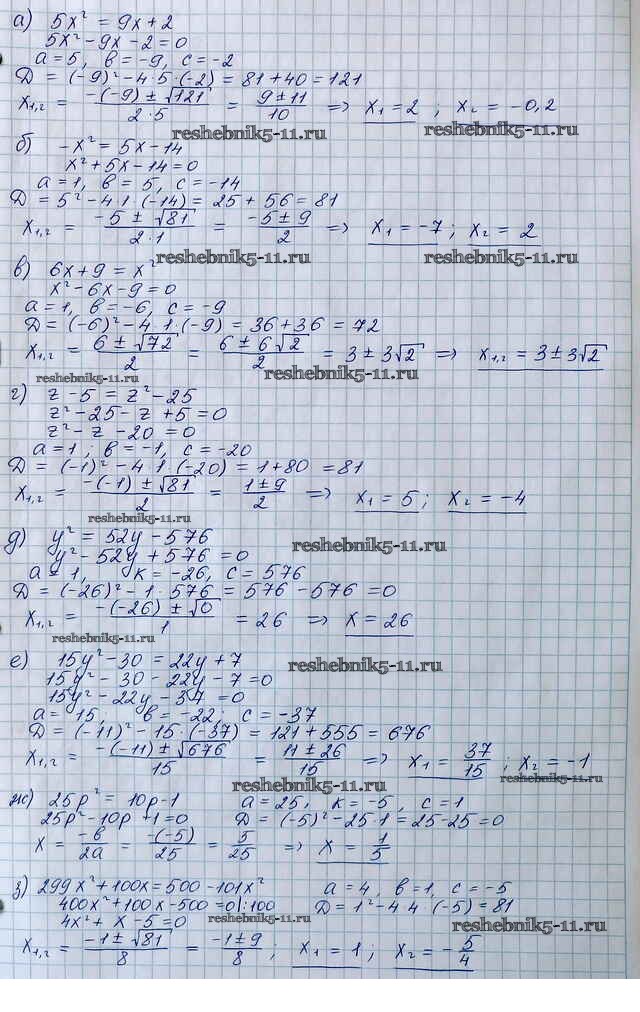 а) 5x² = 9x + 2
5x² - 9x - 2 = 0
a = 5, в = -9, c = -2
D = (-9)² - 4·5·(-2) = 81 + 40 = 121
x₁,₂ = (-(-9) ± √121)/(2·5) = (9 ± 11)/10 => x₁ = 2 ; x₂ = -0,2
reshebnik5-11.ru reshebnik5-11.ru
б) -x² = 5x - 14
x² + 5x - 14 = 0
a = 1, в = 5, c = -14
D = 5² - 4·1·(-14) = 25 + 56 = 81
x₁,₂ = (-5 ± √81)/(2·1) = (-5 ± 9)/2 => x₁ = -7 ; x₂ = 2
reshebnik5-11.ru reshebnik5-11.ru
в) 6x + 9 = x²
x² - 6x - 9 = 0
a = 1, в = -6, c = -9
D = (-6)² - 4·1·(-9) = 36 + 36 = 72
x₁,₂ = (6 ± √72)/2 = (6 ± 6√2)/2 = 3 ± 3√2 => x₁,₂ = 3 ± 3√2
reshebnik5-11.ru reshebnik5-11.ru
г) z - 5 = z² - 25
z² - 25 - z + 5 = 0
z² - z - 20 = 0
a = 1 ; в = -1, c = -20
D = (-1)² - 4·1·(-20) = 1 + 80 = 81
x₁,₂ = (-(-1) ± √81)/2 = (1 ± 9)/2 => x₁ = 5 ; x₂ = -4
reshebnik5-11.ru
д) y² = 52y - 576
reshebnik5-11.ru
y² - 52y + 576 = 0
a = 1, к = -26, c = 576
D = (-26)² - 1·576 = 576 - 576 = 0
x₁,₂ = (-(-26) ± √0)/1 = 26 => x = 26
reshebnik5-11.ru
е) 15y² - 30 = 22y + 7
reshebnik5-11.ru
15y² - 30 - 22y - 7 = 0
15y² - 22y - 37 = 0
a = 15, в = -22; c = -37
D = (-11)² - 15·(-37) = 121 + 555 = 676
x₁,₂ = (-(-11) ± √676)/15 = (11 ± 26)/15 => x₁ = 37/15 ; x₂ = -1
reshebnik5-11.ru reshebnik5-11.ru
ж) 25p² = 10p - 1 a = 25, к = -5, c = 1
25p² - 10p + 1 = 0 D = (-5)² - 25·1 = 25 - 25 = 0
x = -в/2a = -(-5)/25 = 5/25 => x = 1/5
з) 299x² + 100x = 500 - 101x² a = 4, в = 1, c = -5
400x² + 100x - 500 = 0 |:100 D = 1² - 4·4·(-5) = 81
4x² + x - 5 = 0
reshebnik5-11.ru reshebnik5-11.ru
x₁,₂ = (-1 ± √81)/8 = (-1 ± 9)/8 ; x₁ = 1 ; x₂ = -5/4